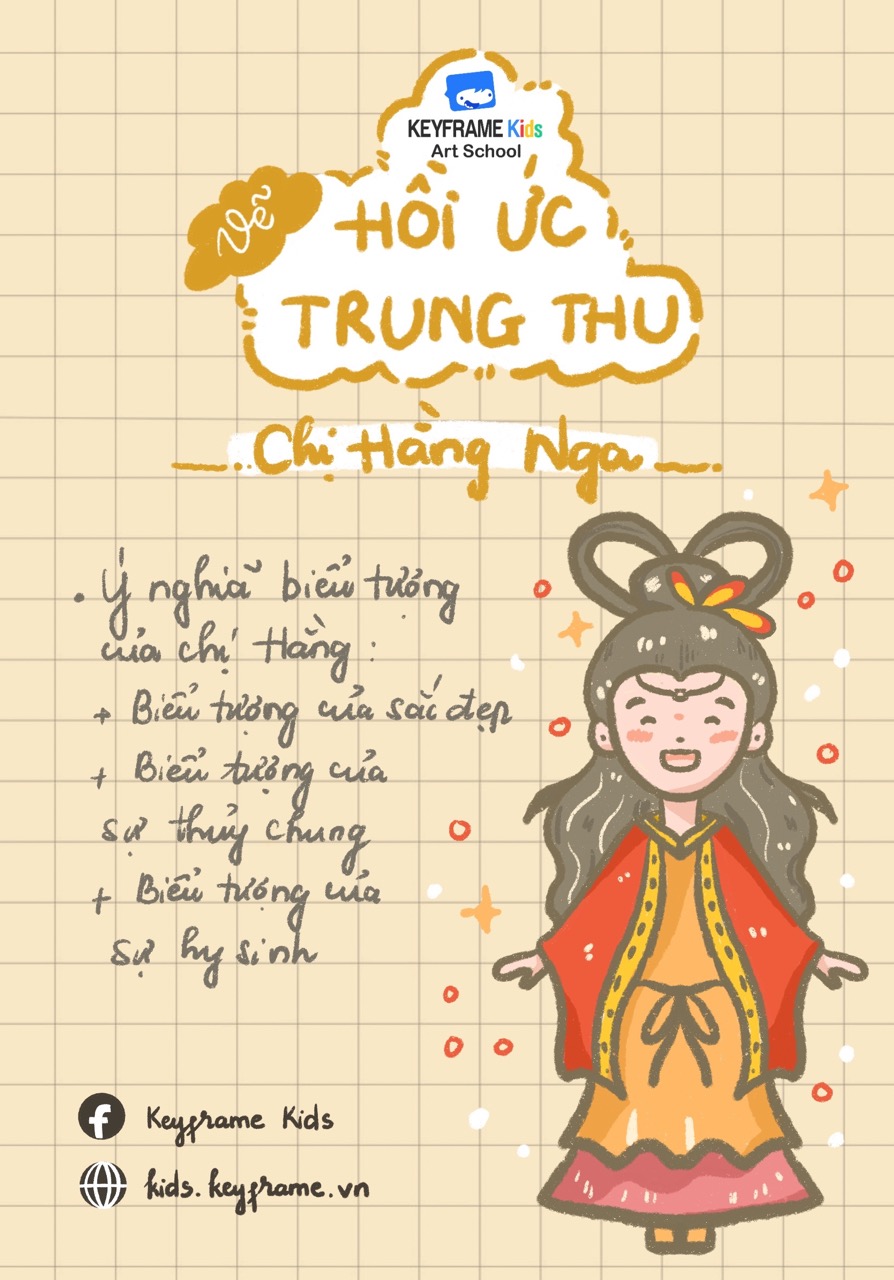 KEYFRAME Kids
Art School
Vẽ
HỒI ỨC
TRUNG THU
Chị Hằng Nga
. Ý nghĩa biểu tượng
của chị Hằng :
+ Biểu tượng của sắc đẹp
+ Biểu tượng của
sự thủy chung
+ Biểu tượng của
sự hy sinh
f Keyframe Kids
kids.keyframe.vn